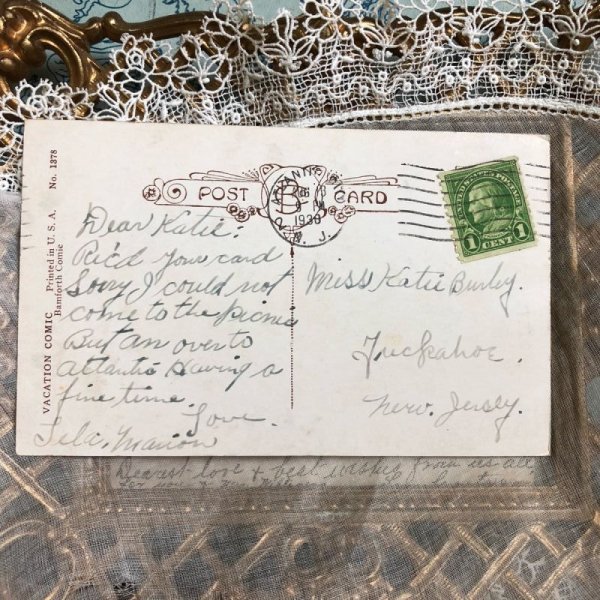 No. 1378
Printed in U. S. A.
Bamforth Comic
VACATION COMIC
POST CARD
ATLANTIC CITY
1938
N. J.
1 CENT 1
Dear Katie:
Rec'd your card
Sorry I could not
come to the picnic
But am over to
atlantic Having a
fine time.
Love.
Lela, Marion
Miss Katie Burley.
Tuckahoe.
New. Jersey.
Dearest love + best wishes from us all